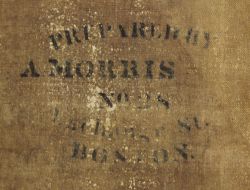 PREPARED BY
A MORRIS
No. 28
Exchange St.
BOSTON.